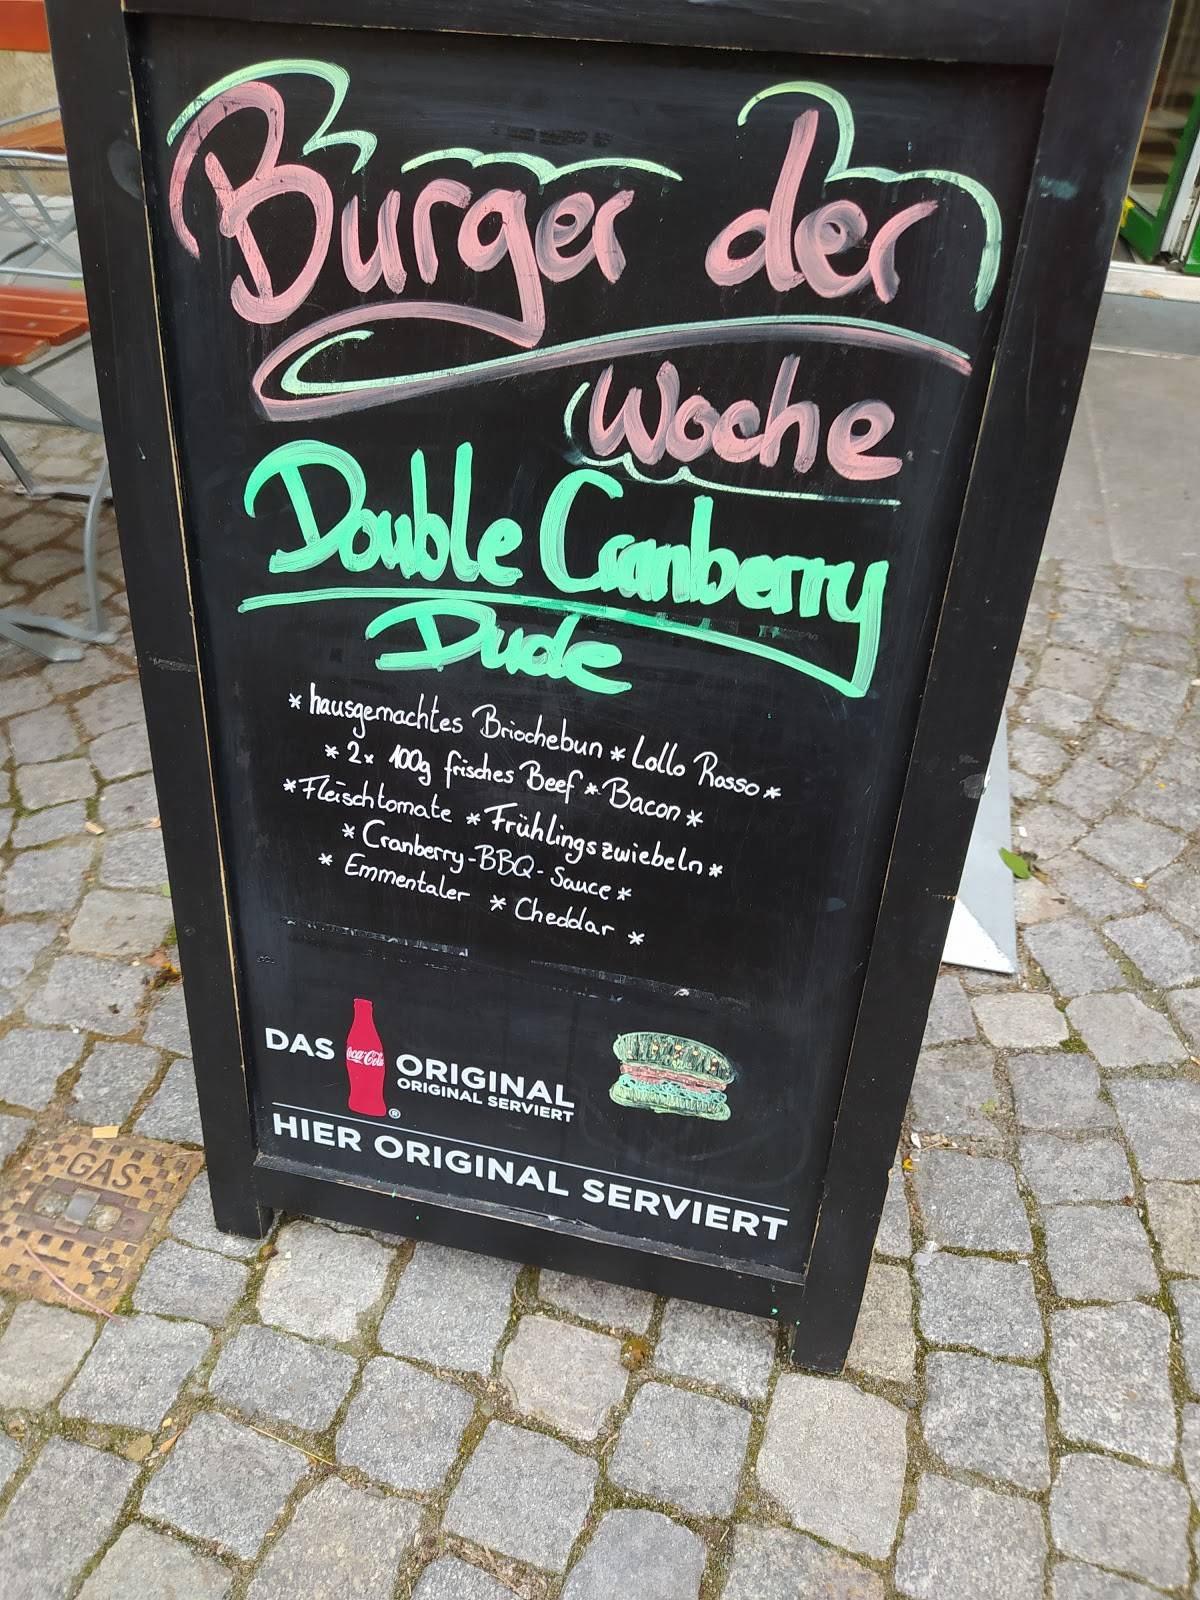 Burger der
Woche
Double Cranberry
Dude
* hausgemachtes Briochebun * Lollo Rosso *
* 2x 100g frisches Beef * Bacon *
* Fleischtomate * Frühlingszwiebeln *
* Cranberry-BBQ-Sauce *
* Emmentaler * Cheddar *
DAS Coca-Cola ® ORIGINAL
ORIGINAL SERVIERT
HIER ORIGINAL SERVIERT
GAS